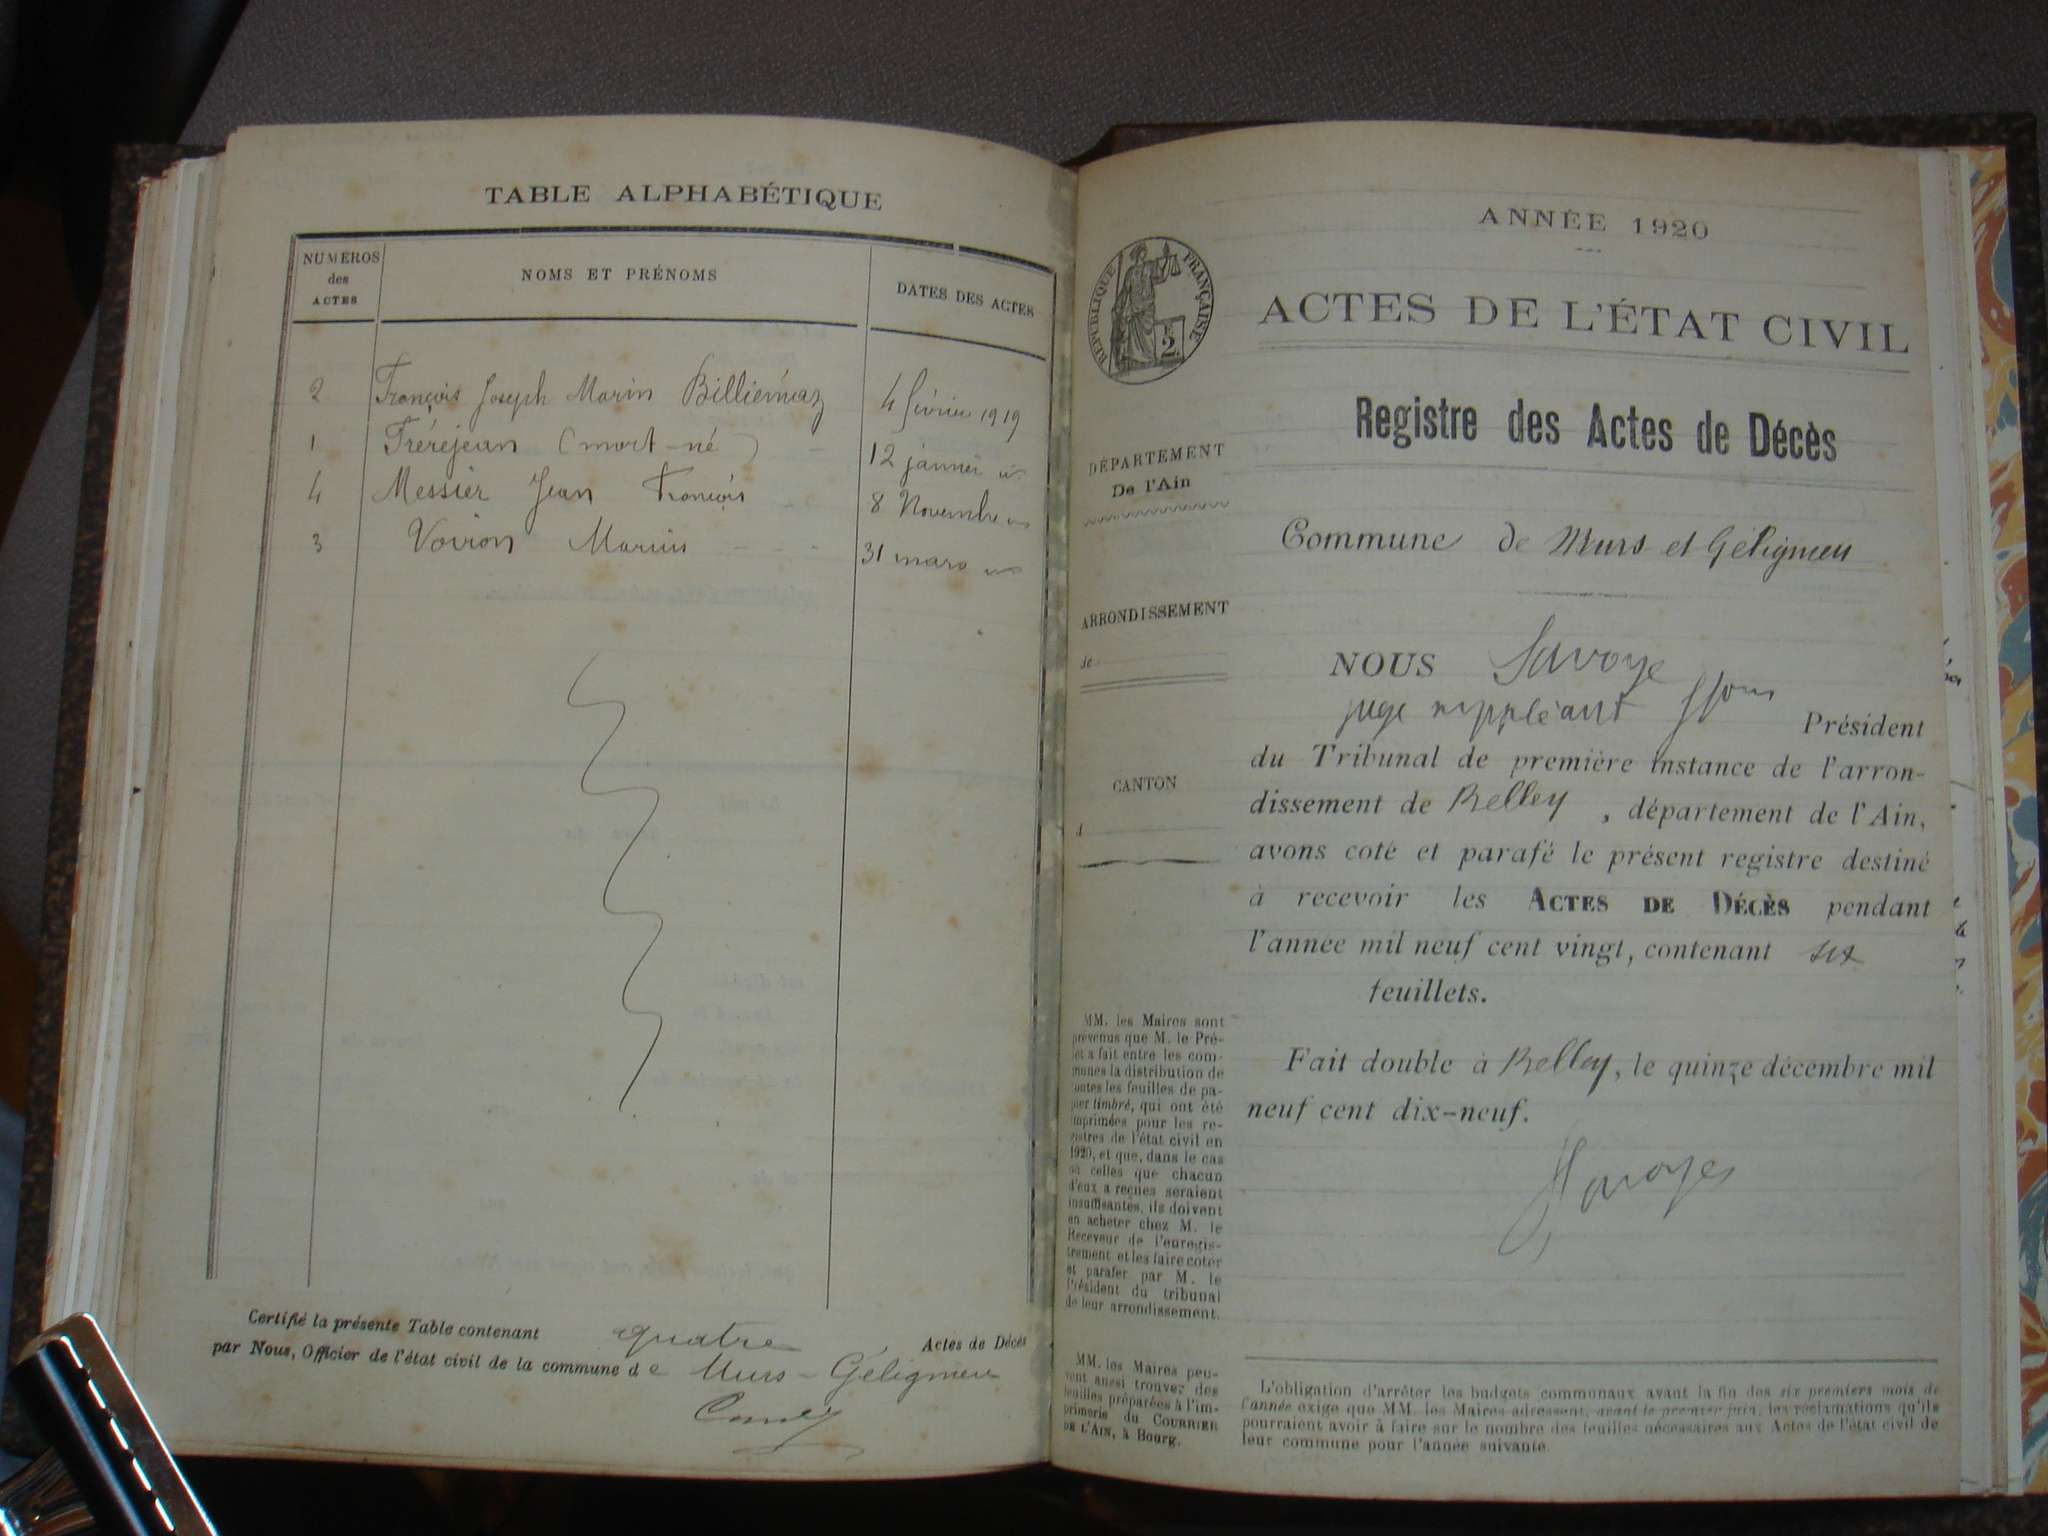 TABLE ALPHABÉTIQUE
NUMÉROS des ACTES
NOMS ET PRÉNOMS
DATES DES ACTES
2 François Joseph Marin Billiemaz 4 février 1919
1 Fréréjean (mort-né) 12 janvier
4 Messier Jean François 8 Novembre
3 Voiron Marius 31 mars
Certifié la présente Table contenant quatre Actes de Décès
par Nous, Officier de l'état civil de la commune de Murs-Géligneux
ANNÉE 1920
RÉPUBLIQUE FRANÇAISE
2
ACTES DE L'ÉTAT CIVIL
Registre des Actes de Décès
DÉPARTEMENT
De l'Ain
Commune de Murs et Géligneux
ARRONDISSEMENT
de
CANTON
d
NOUS Savoye
juge suppléant Président
du Tribunal de première instance de l'arron-
dissement de Belley, département de l'Ain,
avons coté et parafé le présent registre destiné
à recevoir les ACTES DE DÉCÈS pendant
l'année mil neuf cent vingt, contenant six
feuillets.
Fait double à Belley, le quinze décembre mil
neuf cent dix-neuf.
Savoye
MM. les Maires sont
prévenus que M. le Pré-
fet a fait entre les com-
munes la distribution de
toutes les feuilles de pa-
pier timbré, qui ont été
imprimées pour les re-
gistres de l'état civil en
1920, et que, dans le cas
où celles que chacun
d'eux a reçues seraient
insuffisantes, ils doivent
en acheter chez M. le
Receveur de l'enregis-
trement et les faire coter
et parafer par M. le
Président du tribunal
de leur arrondissement.
MM. les Maires peu-
vent aussi trouver des
feuilles préparées à l'im-
primerie du COURRIER
DE L'AIN, à Bourg.
L'obligation d'arrêter les budgets communaux avant la fin des six premiers mois de
l'année exige que MM. les Maires adressent, avant le premier juin, les réclamations qu'ils
pourraient avoir à faire sur le nombre des feuilles nécessaires aux Actes de l'état civil de
leur commune pour l'année suivante.